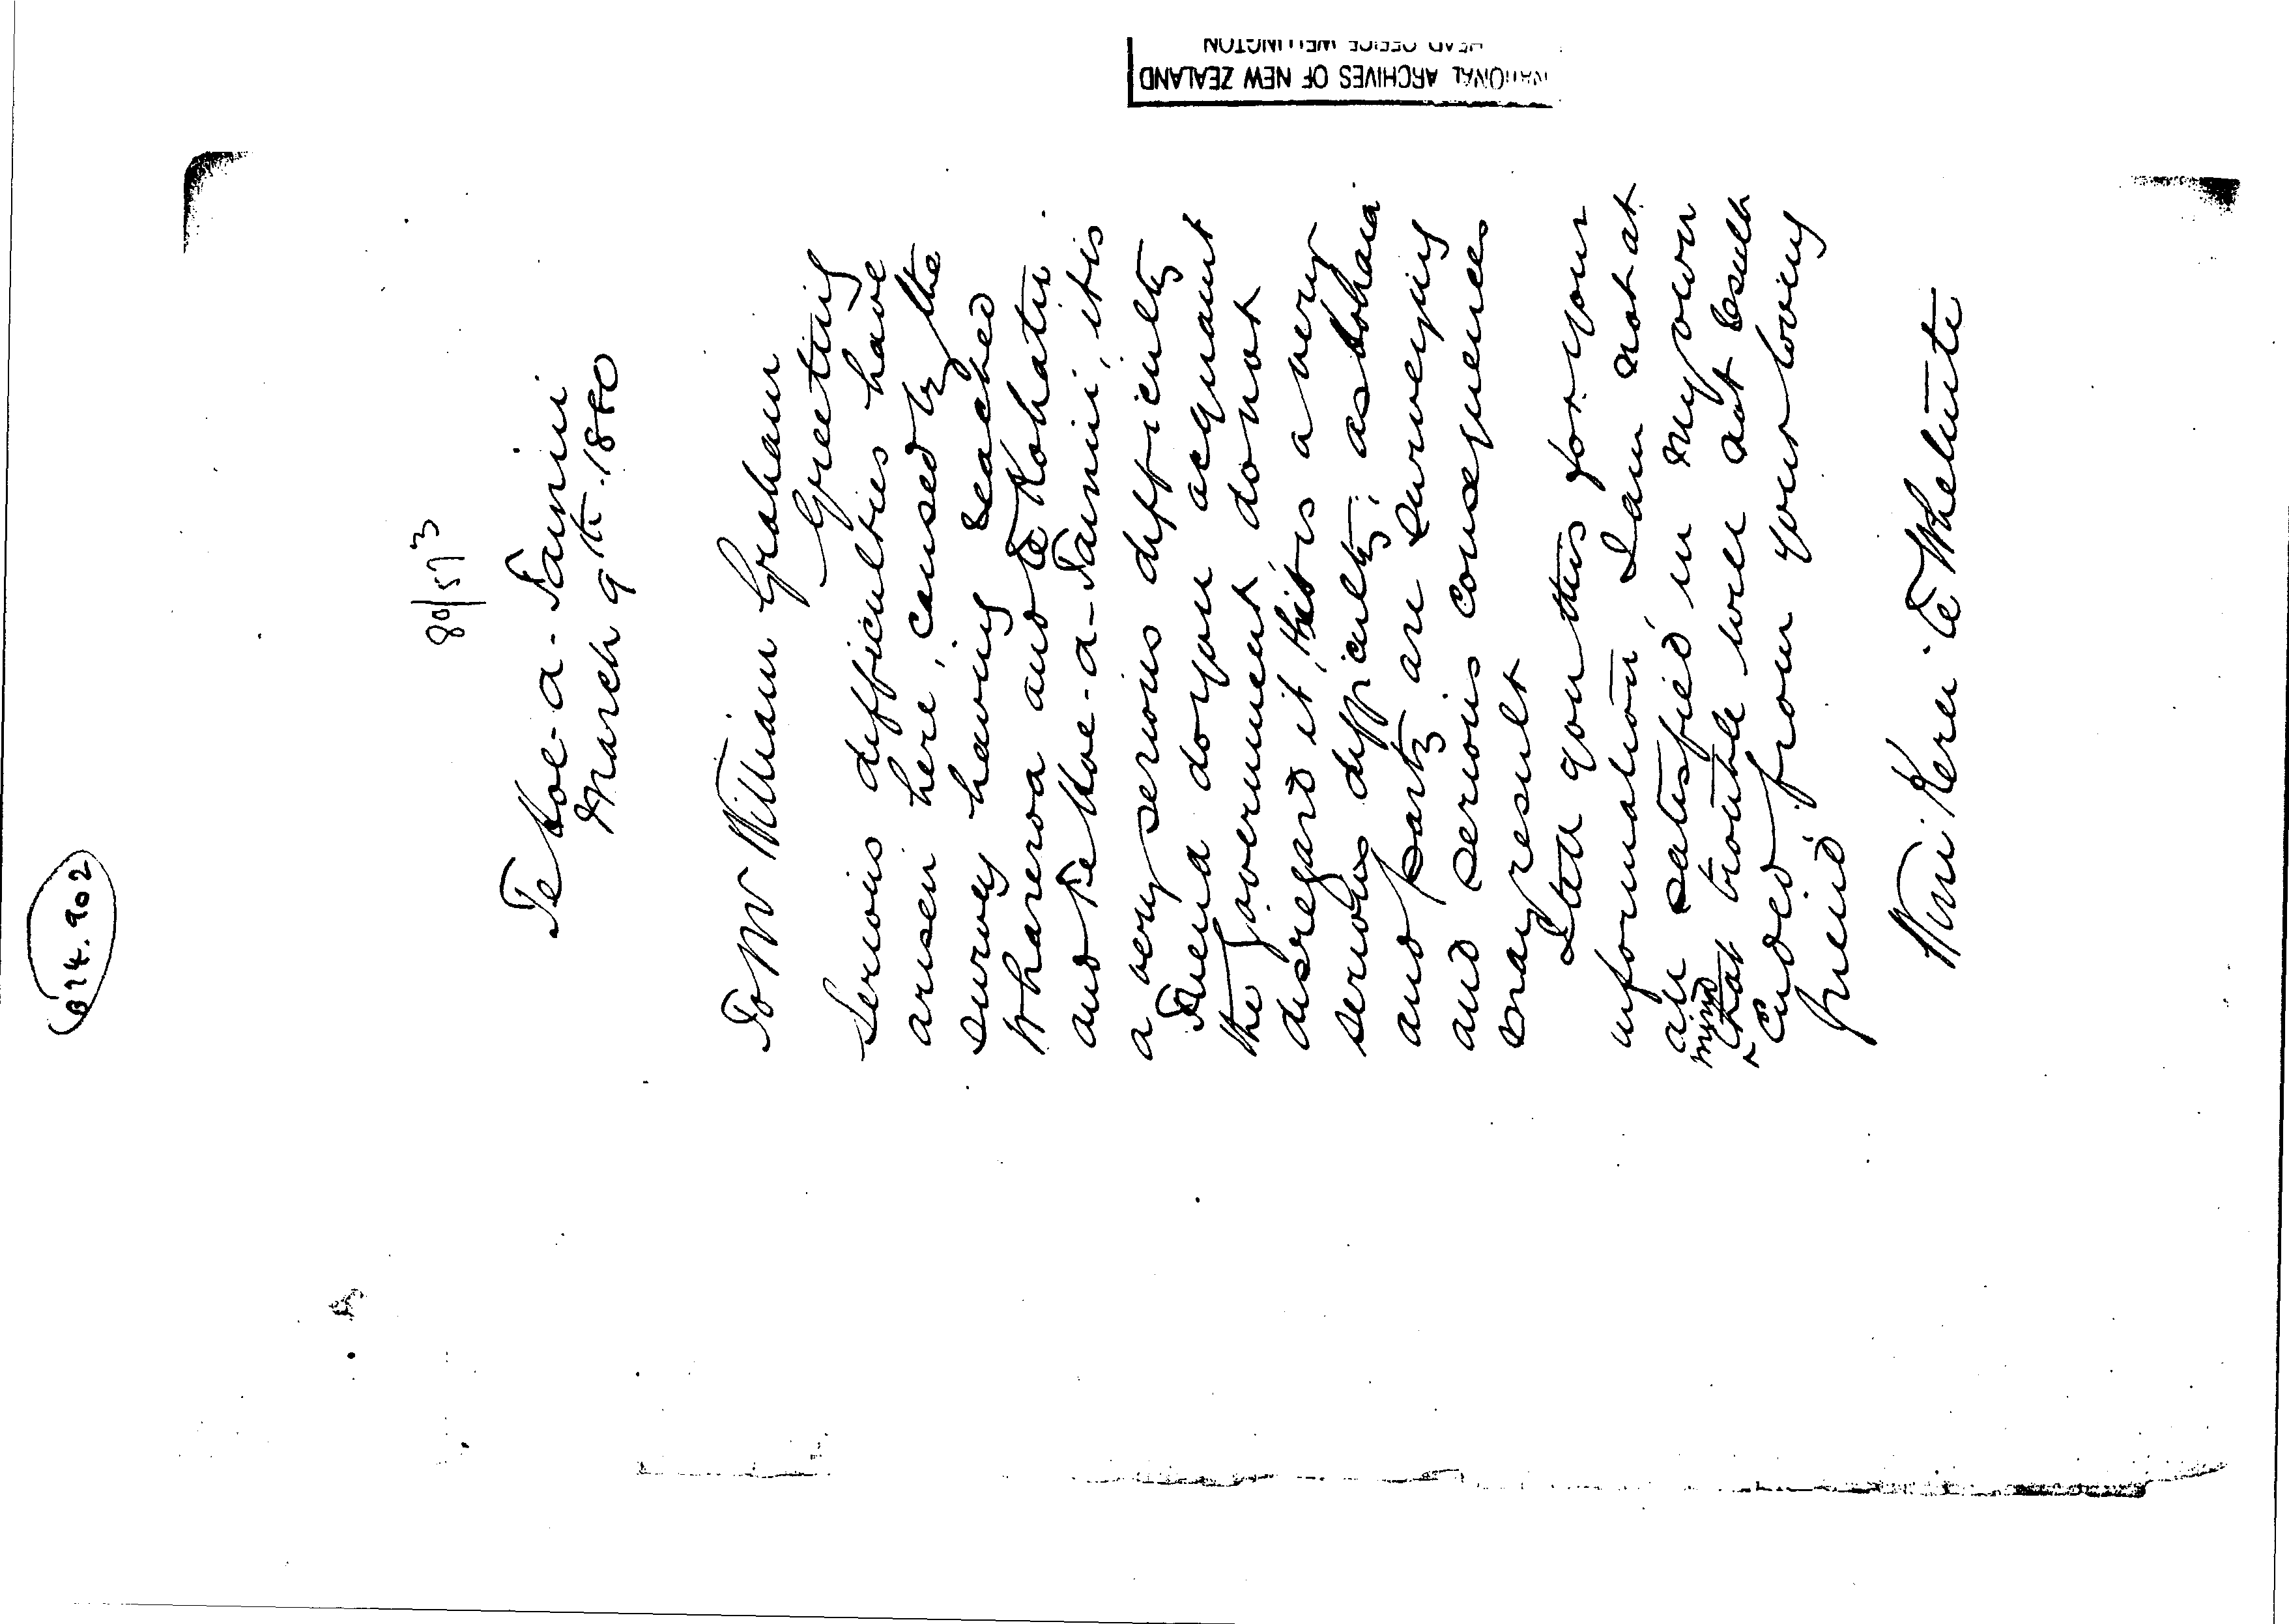 NATIONAL ARCHIVES OF NEW ZEALAND
HEAD OFFICE WELLINGTON
874.902
80/573
Te Hoe-a-Tainui
March 9th. 1880
To Mr William Graham
Greeting
Serious difficulties have
arisen here, caused by the
survey having reached
Whareroa and Te Kohatu
and Te Hoe-a-Tainui, it is
a very serious difficulty
Friend do you acquaint
the government, do not
disregard it, this is a very
serious difficulty, as
and party are surveying
and serious consequences
may result
I tell you this for your
information, I am not at
all satisfied in my own
mind that trouble will not result
Ended from your loving
friend
Wini Kerei Te Whetuiti